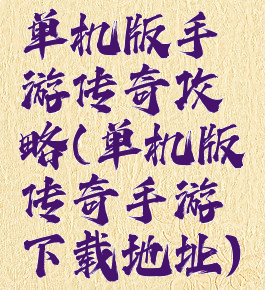 单机版手
游传奇攻
略(单机版
传奇手游
下载地址)